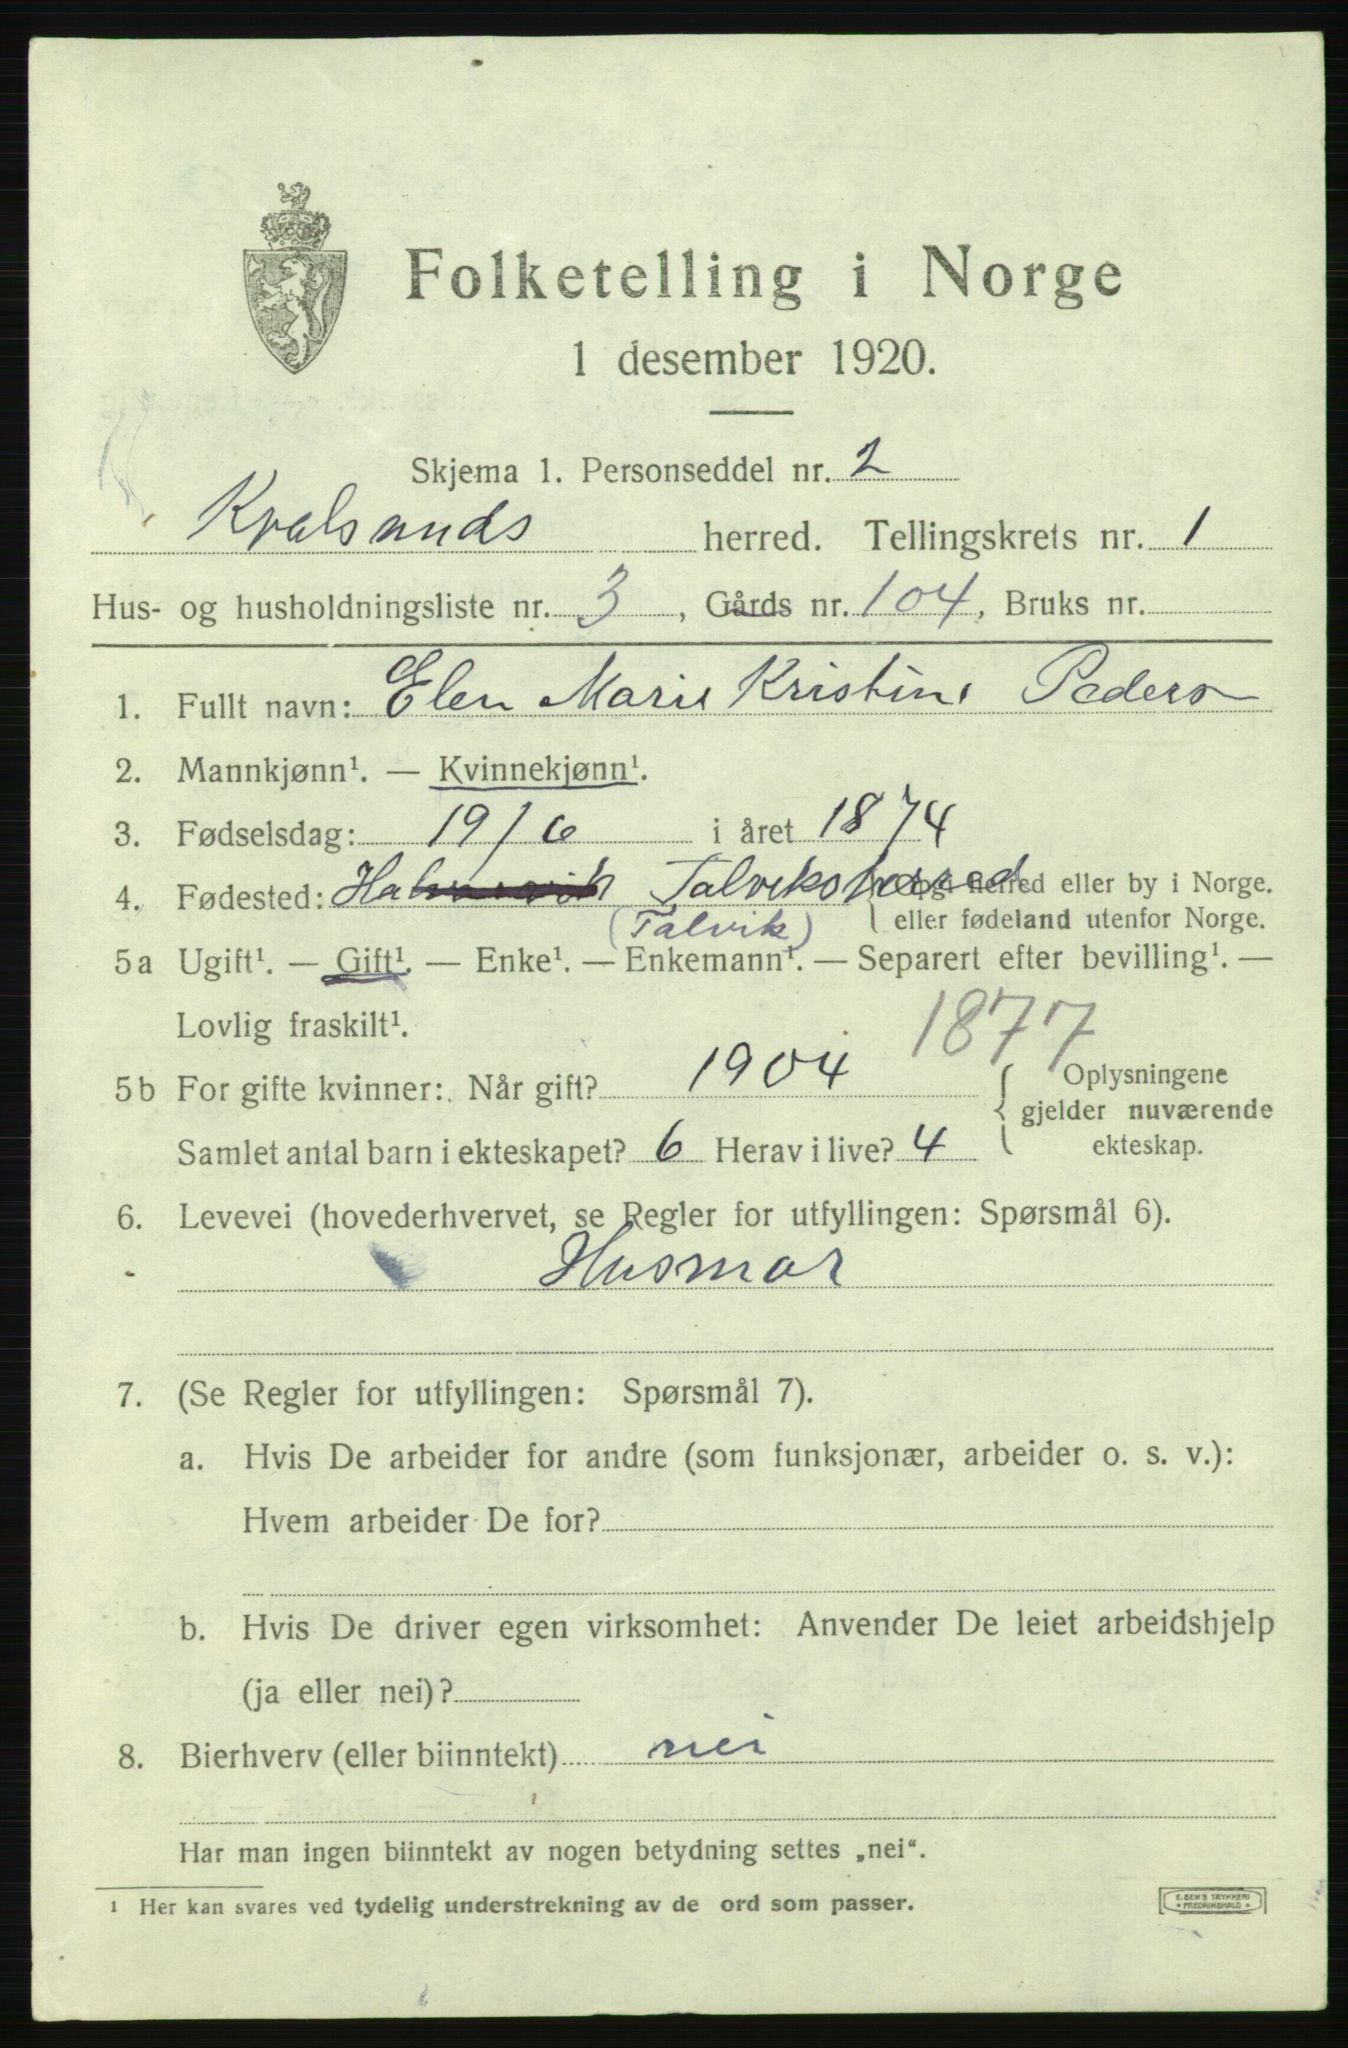 Folketelling i Norge
1 desember 1920.
Skjema 1. Personseddel nr. 2
Kvalsunds herred. Tellingskrets nr. 1
Hus- og husholdningsliste nr. 3, Gårds nr. 104, Bruks nr.
1. Fullt navn: Elen Marie Kristine Peders
2. Mannkjønn¹. — Kvinnekjønn¹.
3. Fødselsdag: 19/6 i året 1874
4. Fødested: Talviksherred { Opgi herred eller by i Norge.
(Talvik) eller fødeland utenfor Norge.
5a Ugift¹. — Gift¹. — Enke¹. — Enkemann¹. — Separert efter bevilling¹. —
Lovlig fraskilt¹. 1877
5b For gifte kvinner: Når gift? 1904 { Oplysningene
gjelder nuværende
Samlet antal barn i ekteskapet? 6 Herav i live? 4 ekteskap.
6. Levevei (hovederhvervet, se Regler for utfyllingen: Spørsmål 6).
Husmor
7. (Se Regler for utfyllingen: Spørsmål 7).
a. Hvis De arbeider for andre (som funksjonær, arbeider o. s. v.):
Hvem arbeider De for?
b. Hvis De driver egen virksomhet: Anvender De leiet arbeidshjelp
(ja eller nei)?
8. Bierhverv (eller biinntekt) nei
Har man ingen biinntekt av nogen betydning settes „nei“.
¹ Her kan svares ved tydelig understrekning av de ord som passer.
E. SEM'S TRYKKERI
* FREDRIKSHALD *